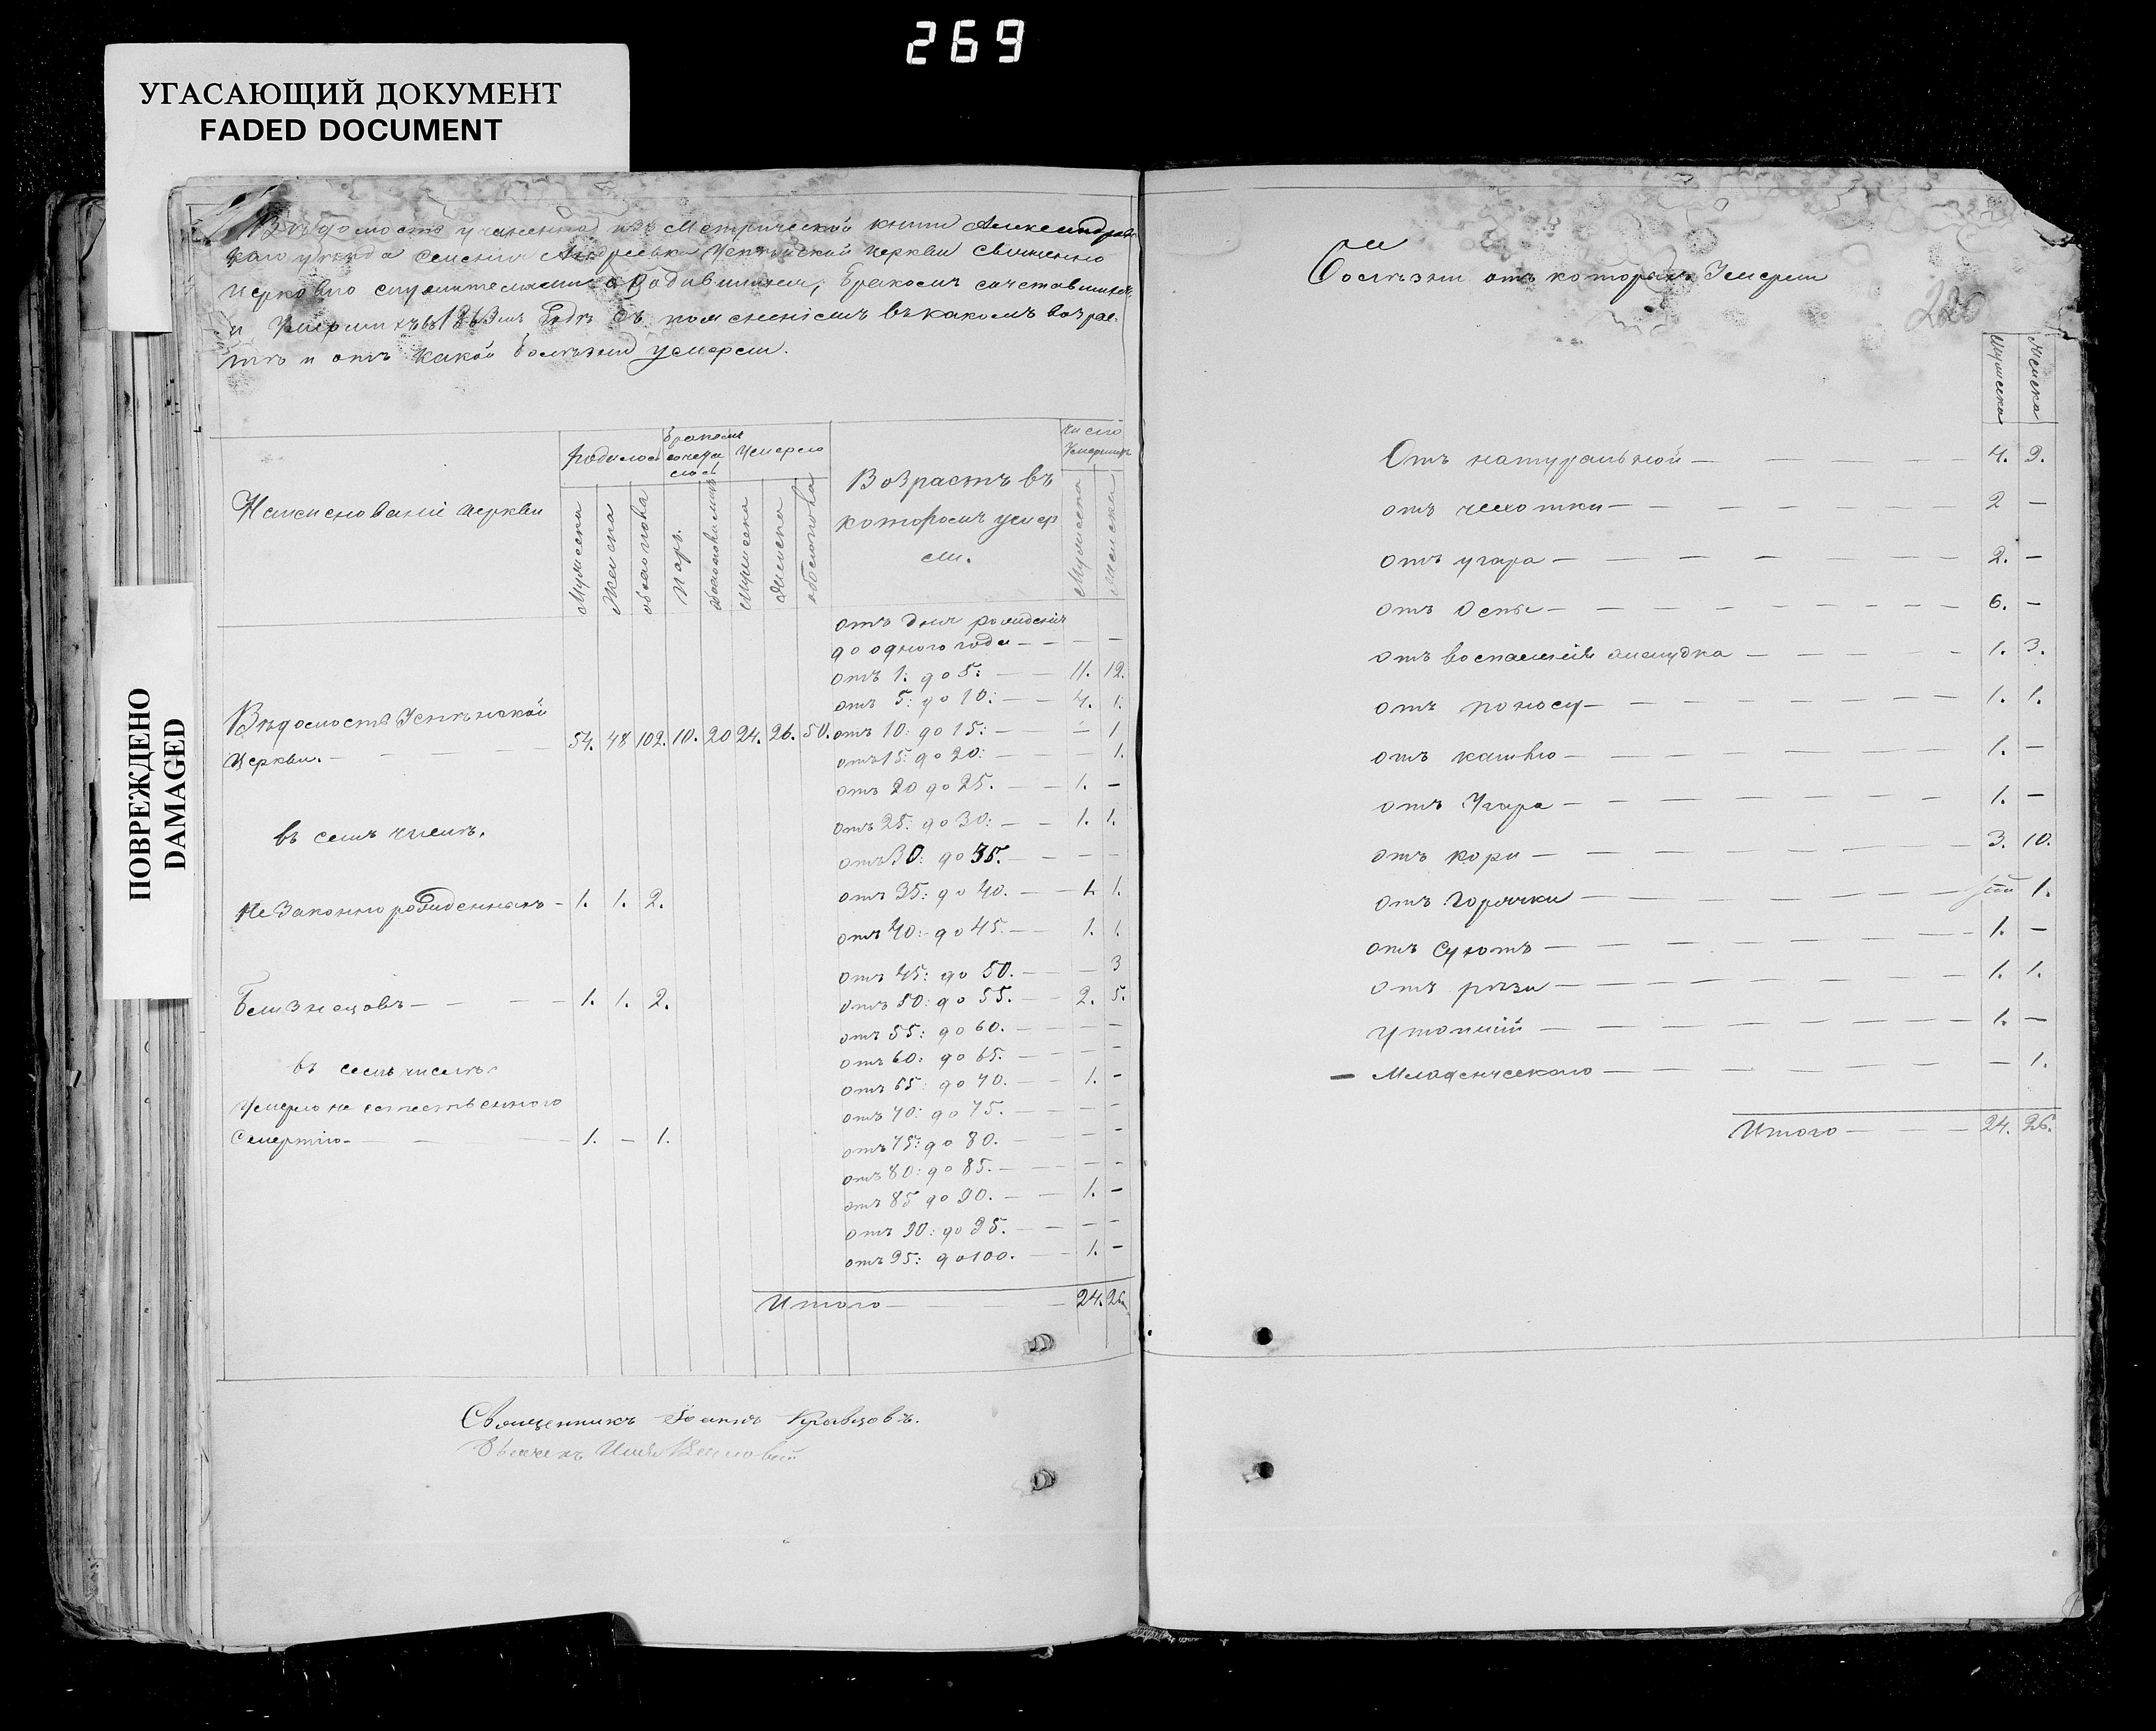 269
УГАСАЮЩИЙ ДОКУМЕНТ
FADED DOCUMENT
ПОВРЕЖДЕНО
DAMAGED
Вѣдомость учиненна изъ Метрической книги Александров
скаго уѣзда селенія Андреевки Успѣнской Церкви Священно
церковно служителями о Родившихся, бракомъ сочетавшихся,
и Умершихъ въ 1863мъ Годѣ Съ поясненіемъ въ какомъ возрас-
тѣ и отъ какой болѣзни умерли.
Наименованіе церкви
Родилось
бракомъ сочета лось
Умерло
Возрастъ въ
которомъ умер
ли.
число Умершихъ
Мужеска
Женска
обоего пола
Паръ.
обоего пола лицъ
Мужеска
Женска
обоего пола
Мужеска
Женска
отъ дня рожденія
до одного года — — — —
отъ 1: до 5: — — 11. 12.
отъ 5: до 10: — — 4. 1.
Вѣдомость Успѣнской
Церкви. — — — — 54. 48 102. 10. 20 24. 26. 50.
отъ 10: до 15: — — 1
отъ 15: до 20: — — 1.
отъ 20 до 25. — — 1. —
въ семъ числѣ.
отъ 25: до 30: — — 1. 1.
отъ 30: до 35. — — — —
Не Законно рожденныхъ — 1. 1. 2.
отъ 35: до 40. — — 1. 1.
отъ 40: до 45. — — 1. 1.
отъ 45: до 50. — — — 3
Близнецовъ — — — — 1. 1. 2.
отъ 50: до 55. — — 2. 5.
отъ 55: до 60. — — — —
отъ 60: до 65. — — — —
въ семъ числѣ
отъ 65: до 70. — — 1. —
Умерло не естественного
отъ 70: до 75. — — — —
Смертію — — — 1. — 1.
отъ 75: до 80. — — — —
отъ 80: до 85. — — — —
отъ 85 до 90. — — 1. —
отъ 90: до 95. — — — —
отъ 95: до 100. — — 1. —
Итого — — — — 24. 26.
Священникъ Іоаннъ Кравцовъ.
Болѣзни отъ которыхъ Умерли
220
Мужеска
Женска
Отъ натуральной — — — — 4. 9.
отъ чехотки — — — — — 2 —
отъ угара — — — — — — 2. —
отъ Оспы — — — — — — — — 6. —
отъ воспаленія желудка — — — — — 1. 3.
отъ поносу — — — — — — — 1. 1.
отъ кашлю — — — — — — — 1. —
отъ Угара — — — — — — — 1. —
отъ кори — — — — — — — — 3. 10.
отъ Горячки — — — — — — — 1.
отъ Сухотъ — — — — — — — 1. —
отъ рѣзи — — — — — — — 1. 1.
утопшій — — — — — — — — 1. —
— Младенческого — — — — — — — — 1.
Итого — — — 24. 26.